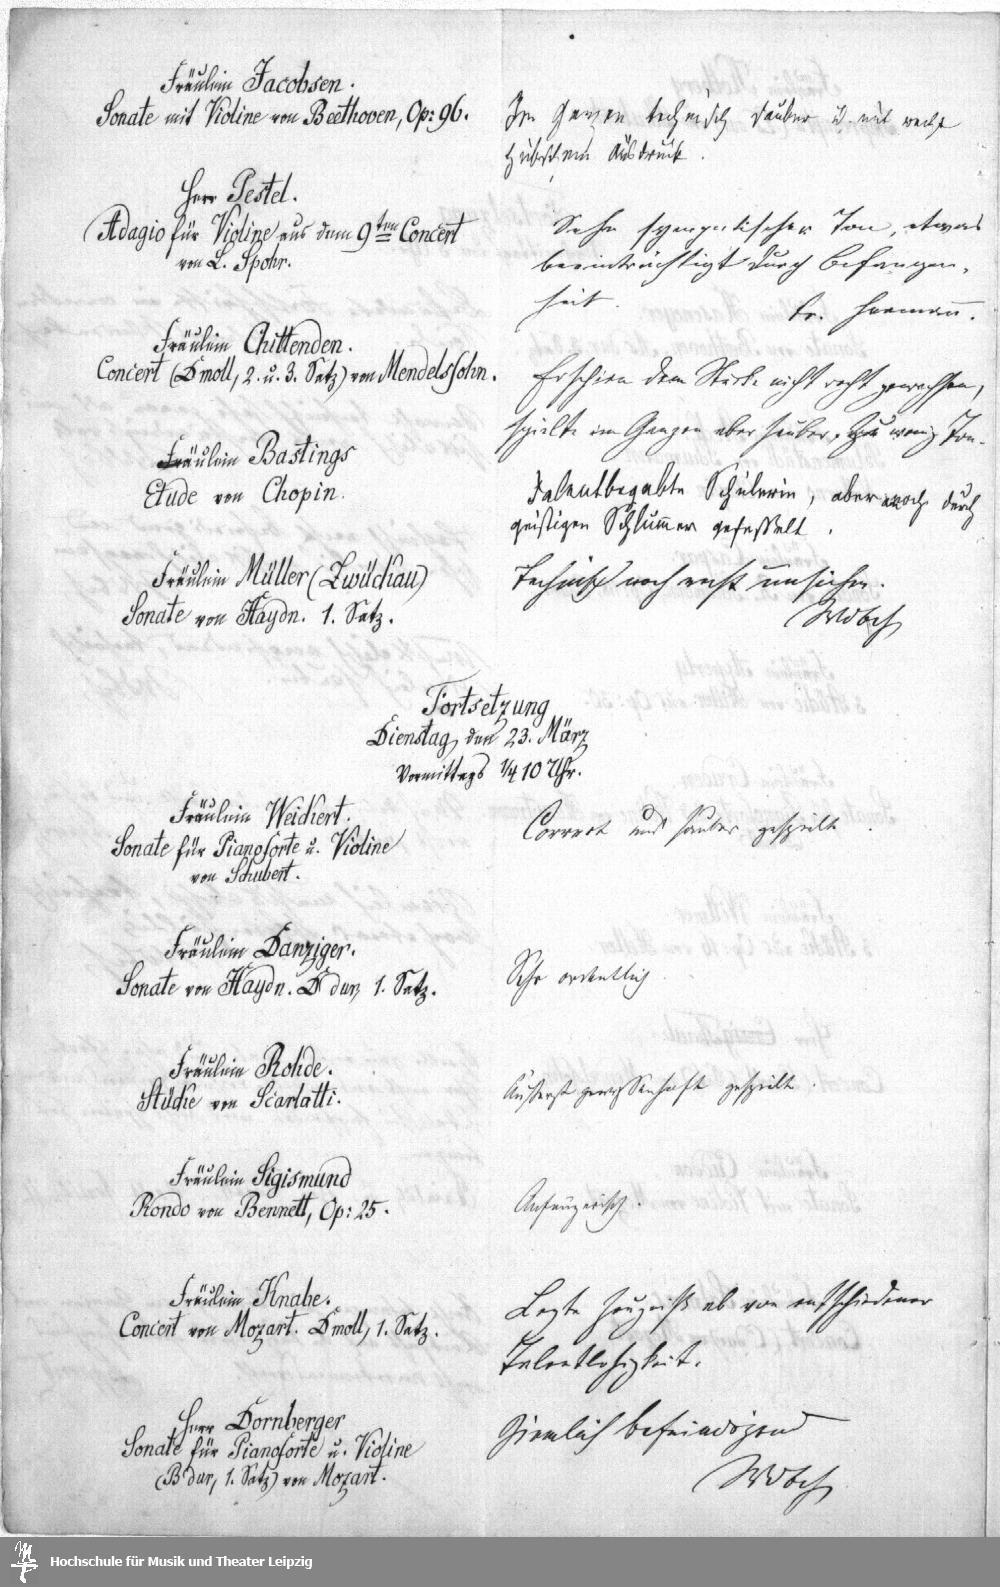 Fräulein Jacobsen.
Sonate mit Violine von Beethoven, Op: 96.
Im Ganzen technisch sauber u. mit recht
hübschem Ausdruck.
Herr Pestel.
Adagio für Violine aus dem 9ten Concert
von L. Spohr.
Sehr sympatischer Ton, etwas
beeinträchtigt durch Befangen-
heit.
Fr. Hermann.
Fräulein Chittenden.
Concert (Dmoll, 2. u. 3. Satz) von Mendelssohn.
Erschien dem Stücke nicht recht gewachsen,
spielte im Ganzen aber sauber, zu wenig Ton.
Fräulein Bastings
Etude von Chopin.
Talentbegabte Schülerin, aber noch durch
geistigen Schlummer gefesselt.
Fräulein Müller (Zwickau)
Sonate von Haydn. 1. Satz.
Technisch noch recht unsicher.
Fortsetzung
Dienstag, den 23. März
Vormittags 1/4 10 Uhr.
Fräulein Weickert.
Sonate für Pianoforte u. Violine
von Schubert.
Correct und sauber gespielt.
Fräulein Danziger.
Sonate von Haydn. D dur, 1. Satz.
Sehr ordentlich
Fräulein Rohde.
Stücke von Scarlatti.
Äußerst gewissenhaft gespielt.
Fräulein Sigismund
Rondo von Bennett, Op: 25.
Anfängerisch.
Fräulein Knabe.
Concert von Mozart. Dmoll, 1. Satz.
Legte Zeugniß ab von entschiedener
Talentlosigkeit.
Herr Dornberger
Sonate für Pianoforte u. Violine
(B dur, 1. Satz) von Mozart.
Ziemlich befriedigend
Hochschule für Musik und Theater Leipzig